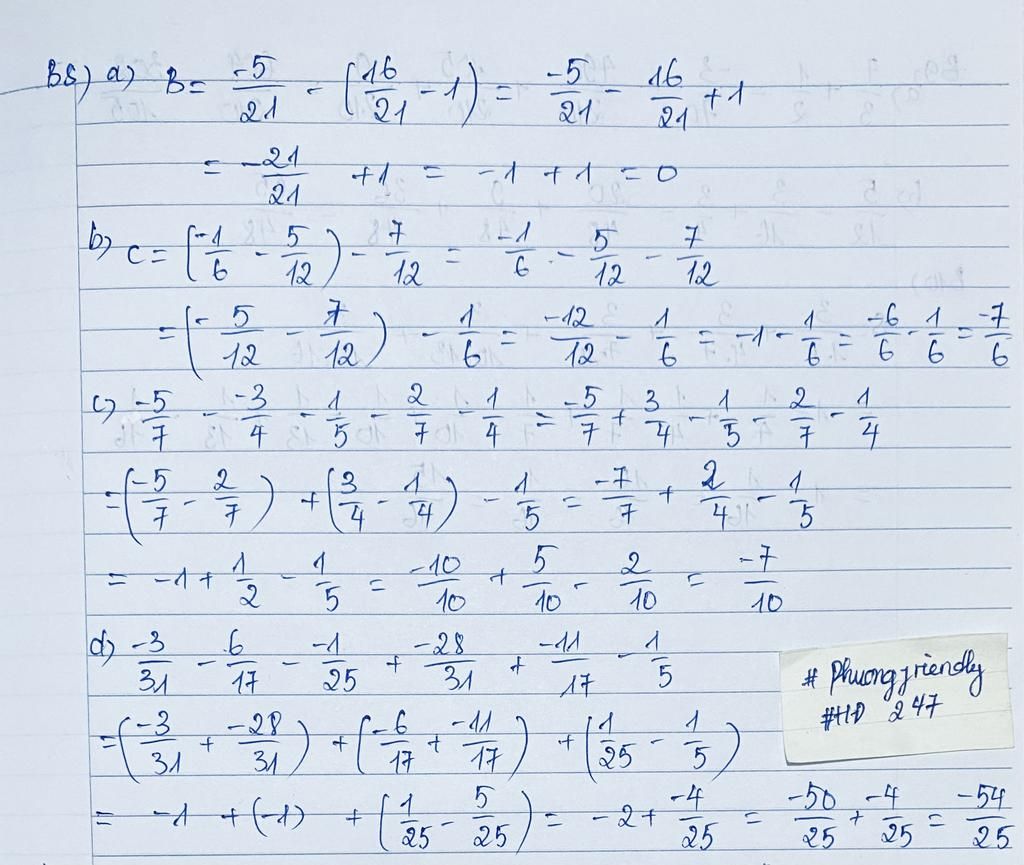 B8) a) B = -5/21 - (16/21 - 1) = -5/21 - 16/21 + 1
= -21/21 + 1 = -1 + 1 = 0
b) C = (-1/6 - 5/12) - 7/12 = -1/6 - 5/12 - 7/12
= (-5/12 - 7/12) - 1/6 = -12/12 - 1/6 = -1 - 1/6 = -6/6 - 1/6 = -7/6
c) -5/7 - -3/4 - 1/5 - 2/7 - 1/4 = -5/7 + 3/4 - 1/5 - 2/7 - 1/4
= (-5/7 - 2/7) + (3/4 - 1/4) - 1/5 = -7/7 + 2/4 - 1/5
= -1 + 1/2 - 1/5 = -10/10 + 5/10 - 2/10 = -7/10
d) -3/31 - 6/17 - -1/25 + -28/31 + -11/17 - 1/5
= (-3/31 + -28/31) + (-6/17 + -11/17) + (1/25 - 1/5)
= -1 + (-1) + (1/25 - 5/25) = -2 + -4/25 = -50/25 + -4/25 = -54/25
# Phuongfriendly
#HD 247